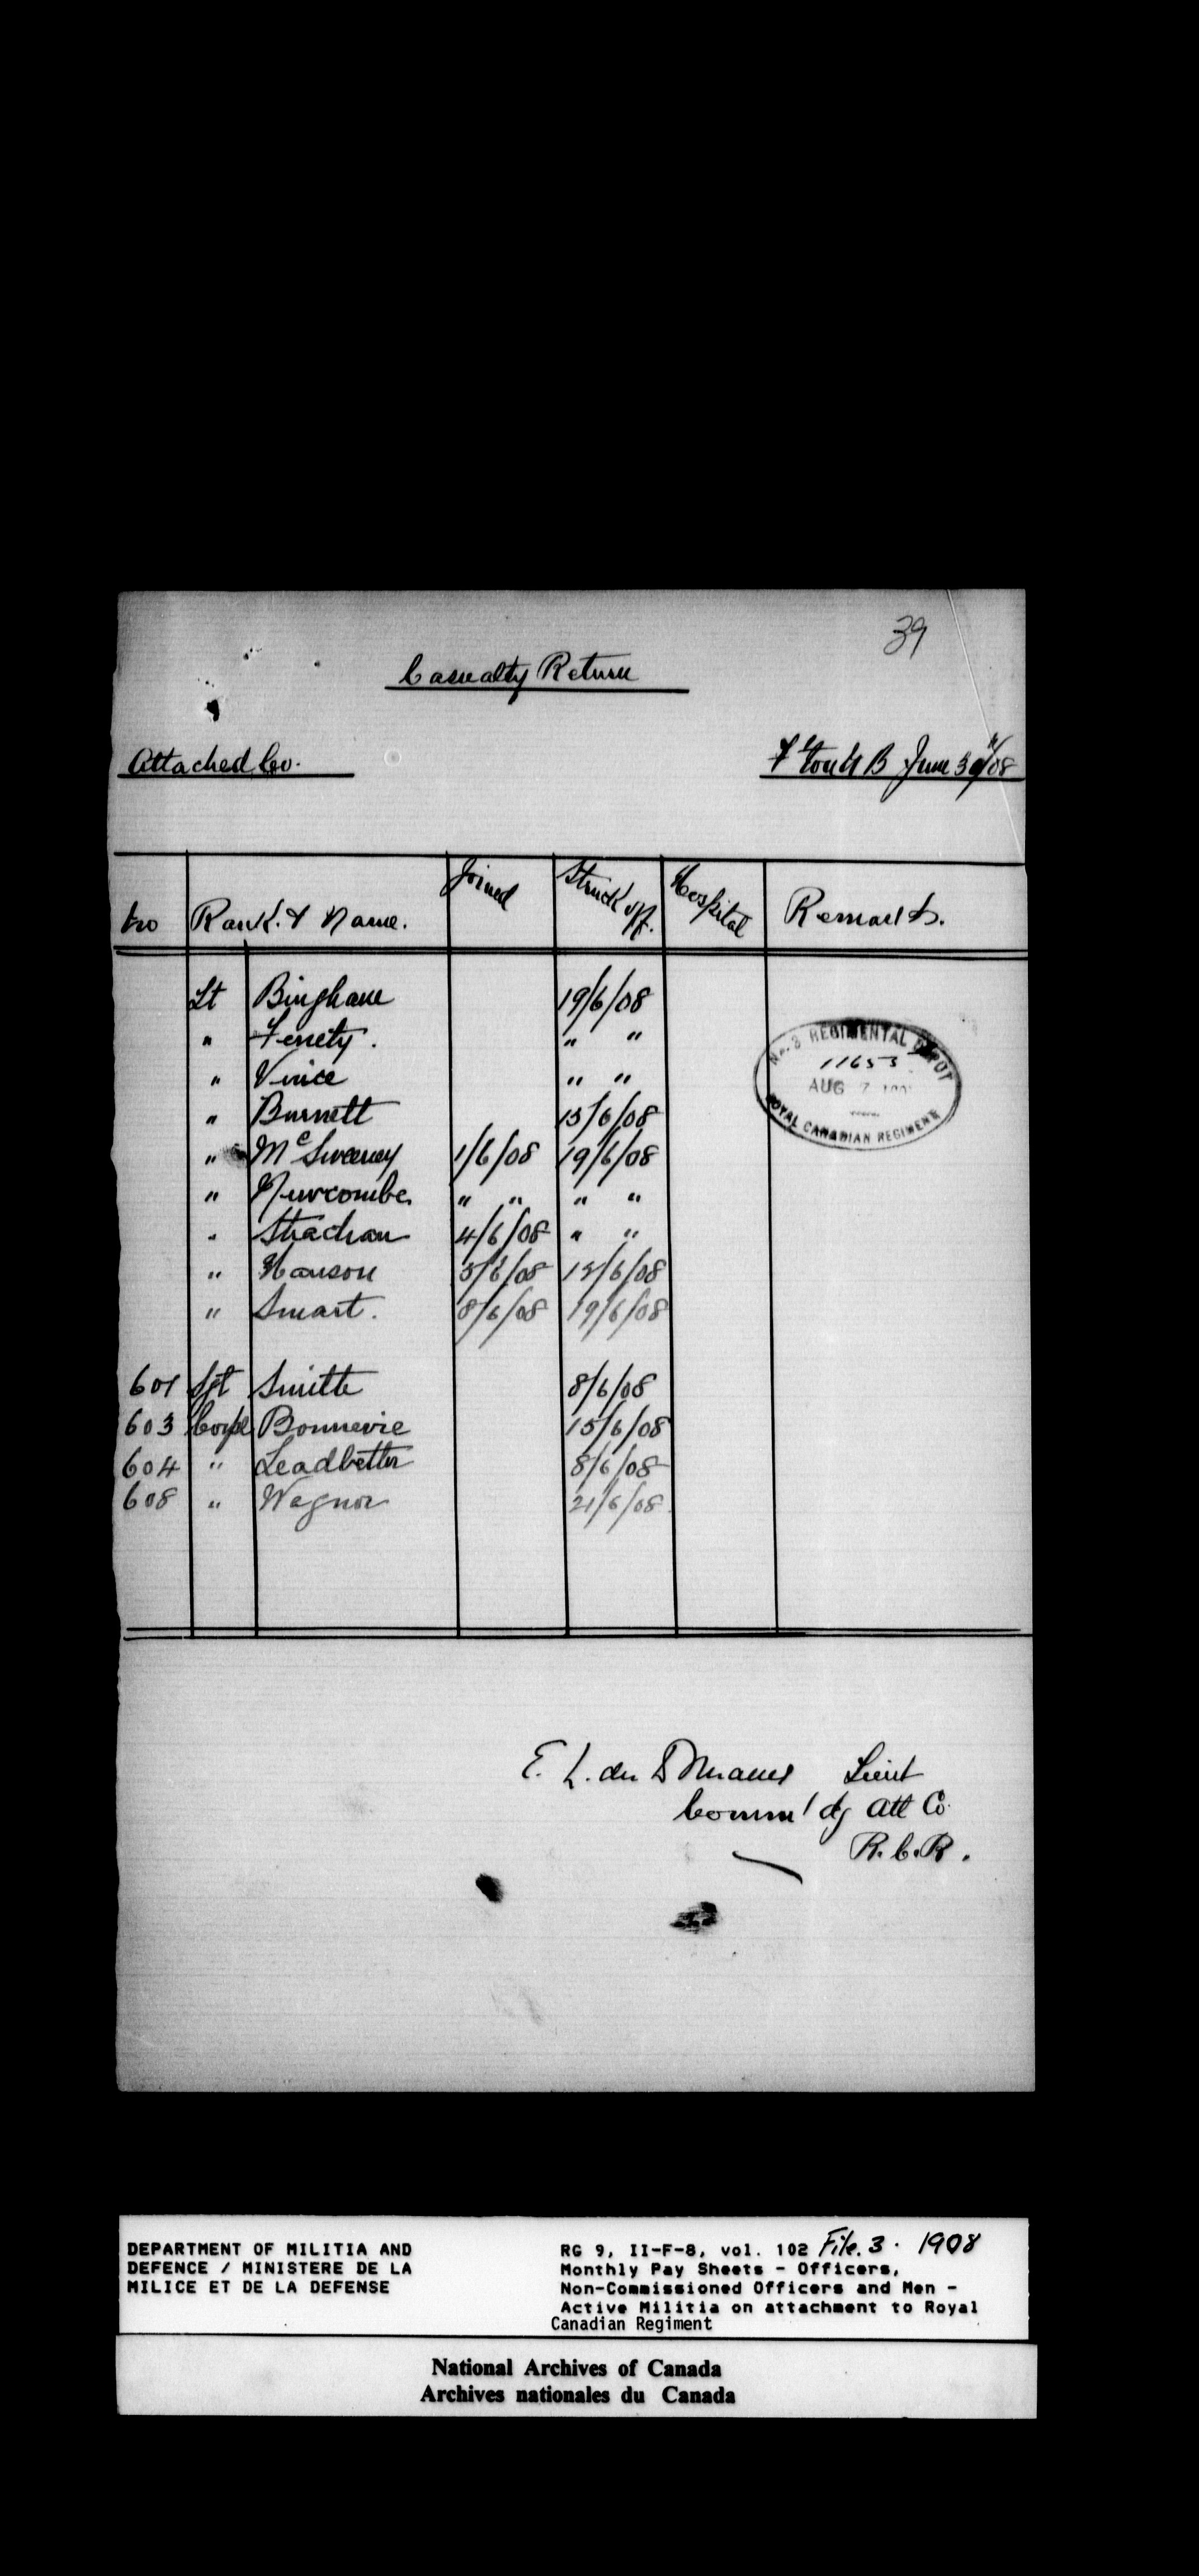 39
Casualty Return
Attached Co. F'ton N B June 30/08
No Rank. & Name. Joined Struck off. Hospital Remarks.
Lt Bingham 19/6/08
" Fenety. " "
" Vince " "
" Burnett 15/6/08
" McSweeney 1/6/08 19/6/08
" Newcombe " " " "
" Strachan 4/6/08 " "
" Hanson 5/6/08 15/6/08
" Smart. 8/6/08 19/6/08
No. 3 REGIMENTAL DEPOT
11653
AUG 7
ROYAL CANADIAN REGIMENT
601 Sgt Smith 8/6/08
603 Corpl Bonnevie 15/6/08
604 " Leadbetter 8/6/08
608 " Wagnor 21/6/08
E. L. du D Lieut
Comm'dg Att Co.
R.C.R.
DEPARTMENT OF MILITIA AND
DEFENCE / MINISTERE DE LA
MILICE ET DE LA DEFENSE
RG 9, II-F-8, vol. 102 File. 3. 1908
Monthly Pay Sheets - Officers,
Non-Commissioned Officers and Men -
Active Militia on attachment to Royal
Canadian Regiment
National Archives of Canada
Archives nationales du Canada